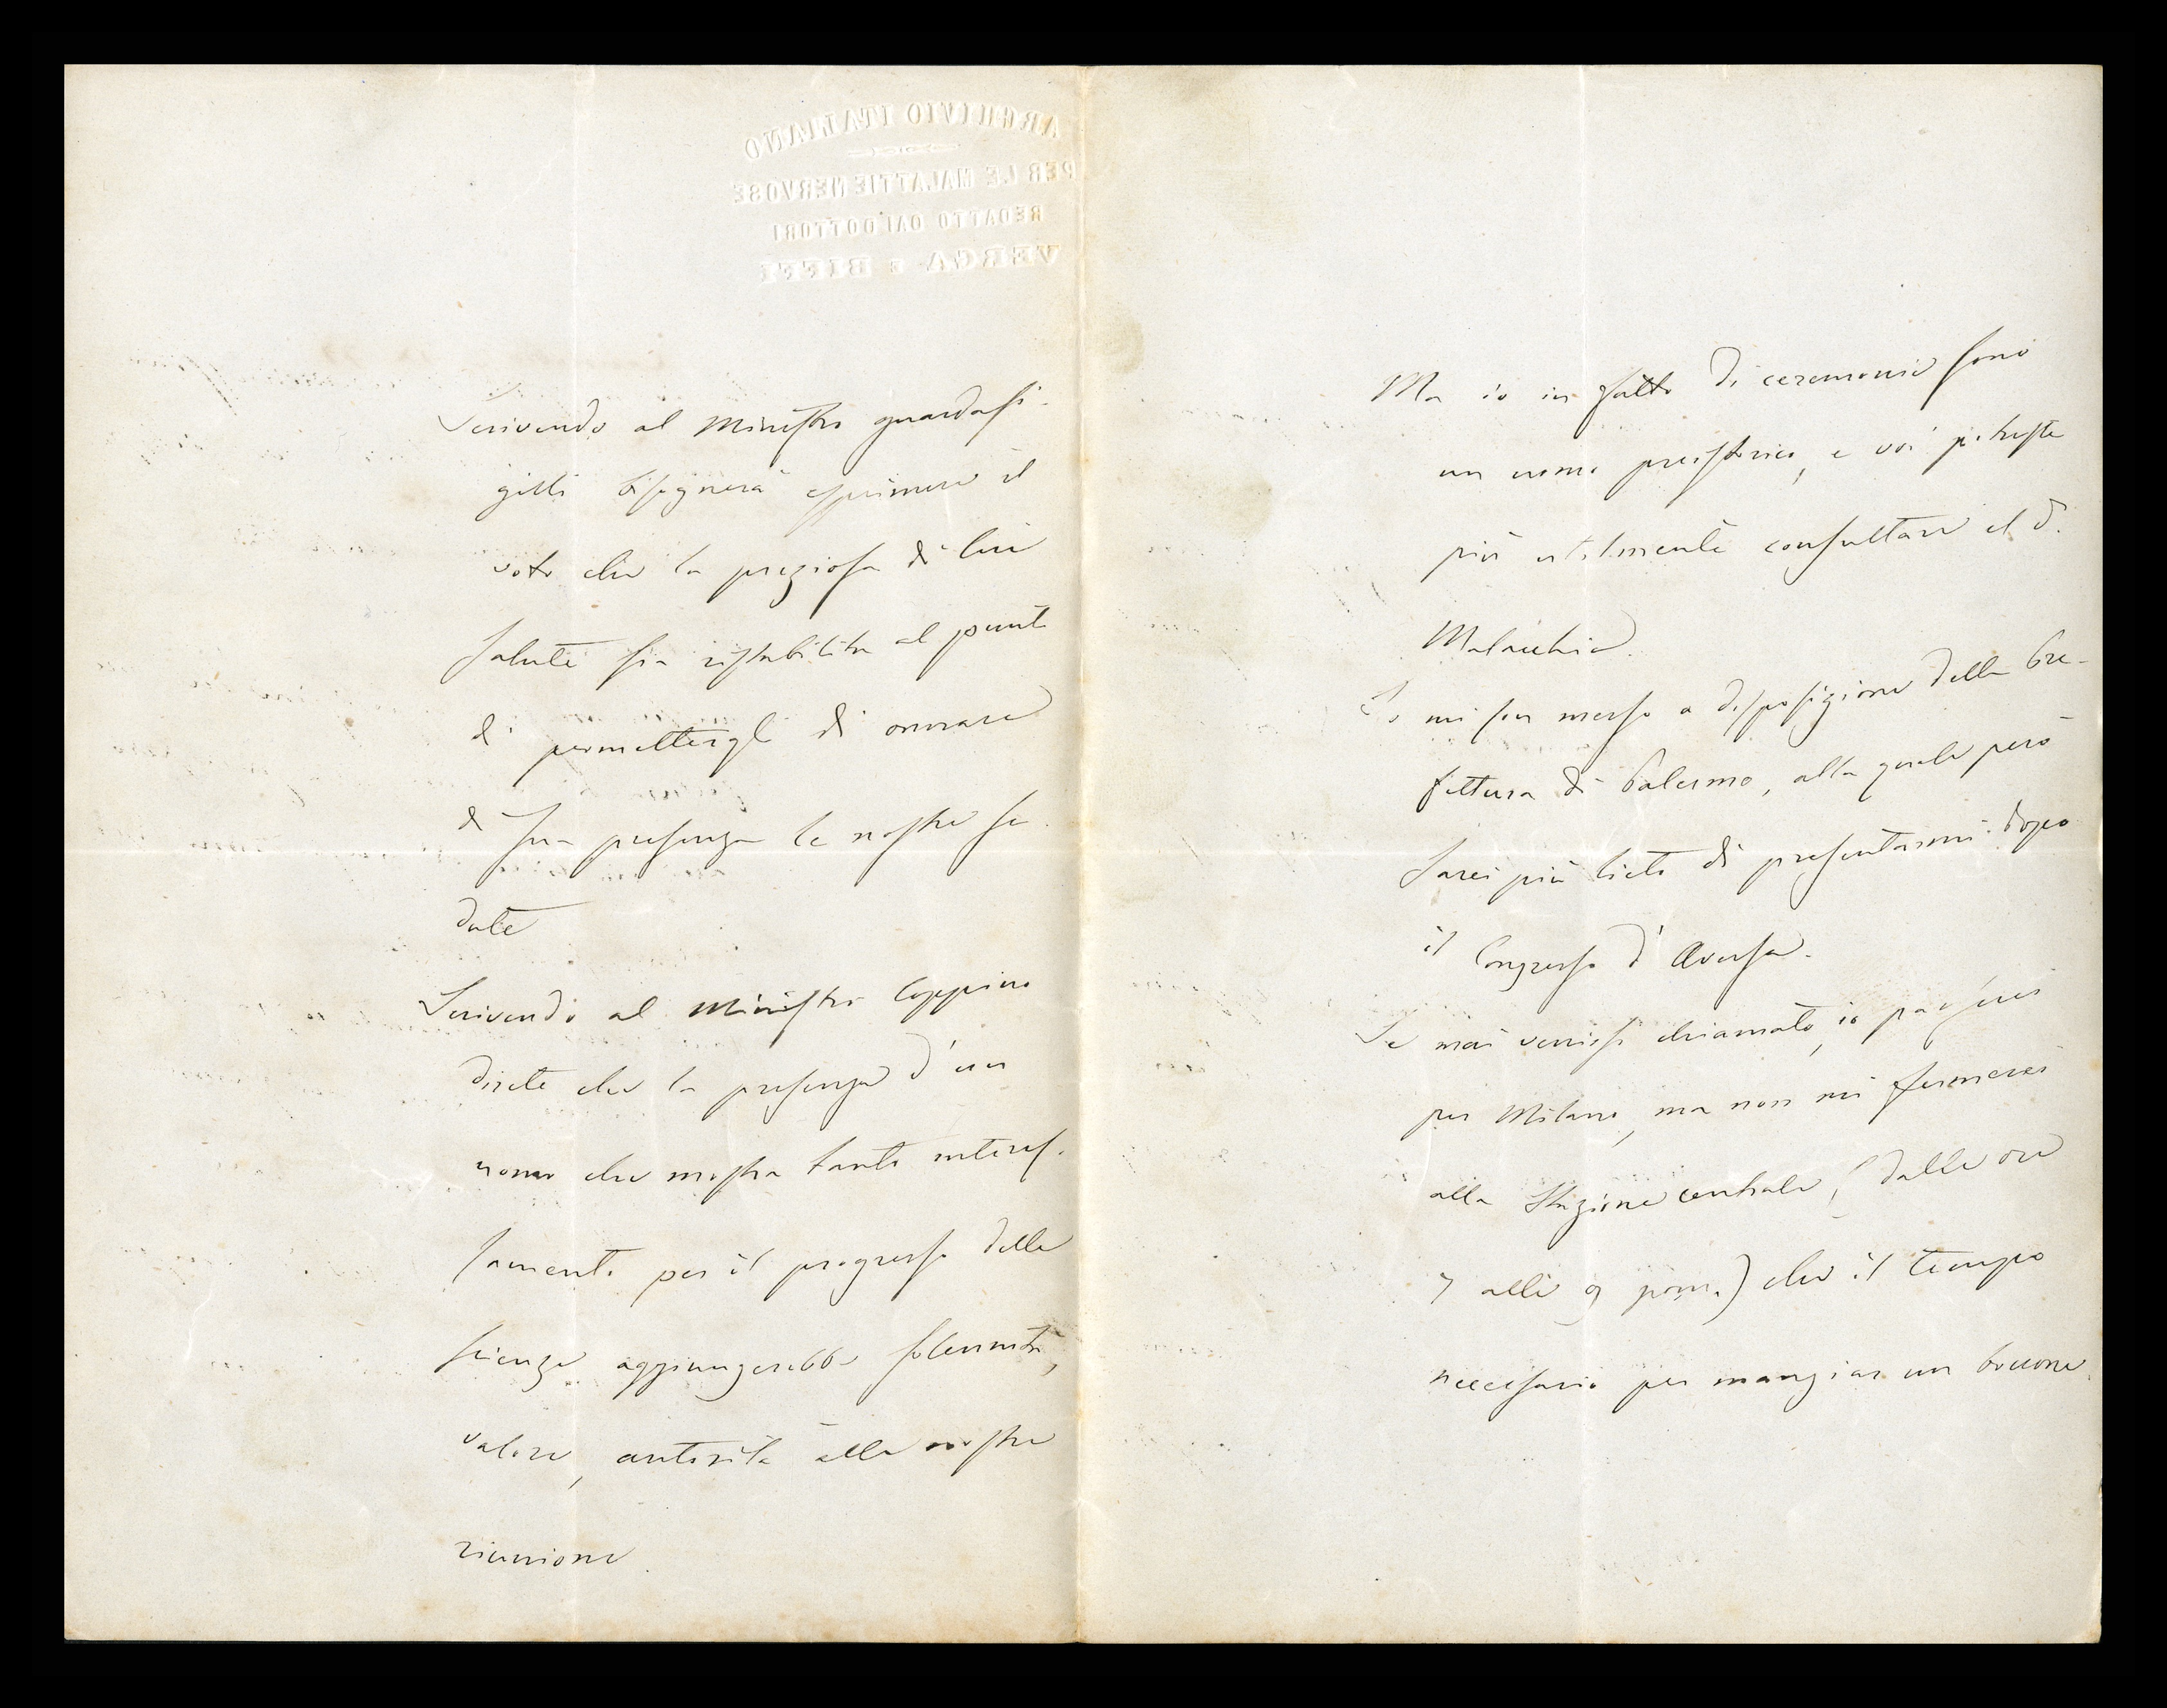 ARCHIVIO ITALIANO
PER LE MALATTIE NERVOSE
REDATTO DAI DOTTORI
VERGA E BIFFI
Scrivendo al Ministro guardasi-
gilli bisognerà esprimere il
voto che la preziosa di lui
salute sia ristabilita al punto
di permettergli di onorare
di sua presenza le nostre se-
dute
Scrivendo al Ministro Coppino
direte che la presenza d'un
uomo che mostra tanto interes-
samento per il progresso delle
scienze aggiungerebbe solennità,
valore, autorità alla nostra
riunione.
Ma io in fatto di ceremonie sono
un uomo preistorico, e voi potreste
più utilmente consultare il D.
Malacchia.
Io mi son messo a disposizione della Pre-
fettura di Palermo, alla quale però
sarei più lieto di presentarmi dopo
il Congresso d'Aversa.
Se mai venissi chiamato, io passerei
per Milano, ma non mi fermerei
alla Stazione centrale, (dalle ore
7 alle 9 pom.) che il tempo
necessario per mangiar un boccone.